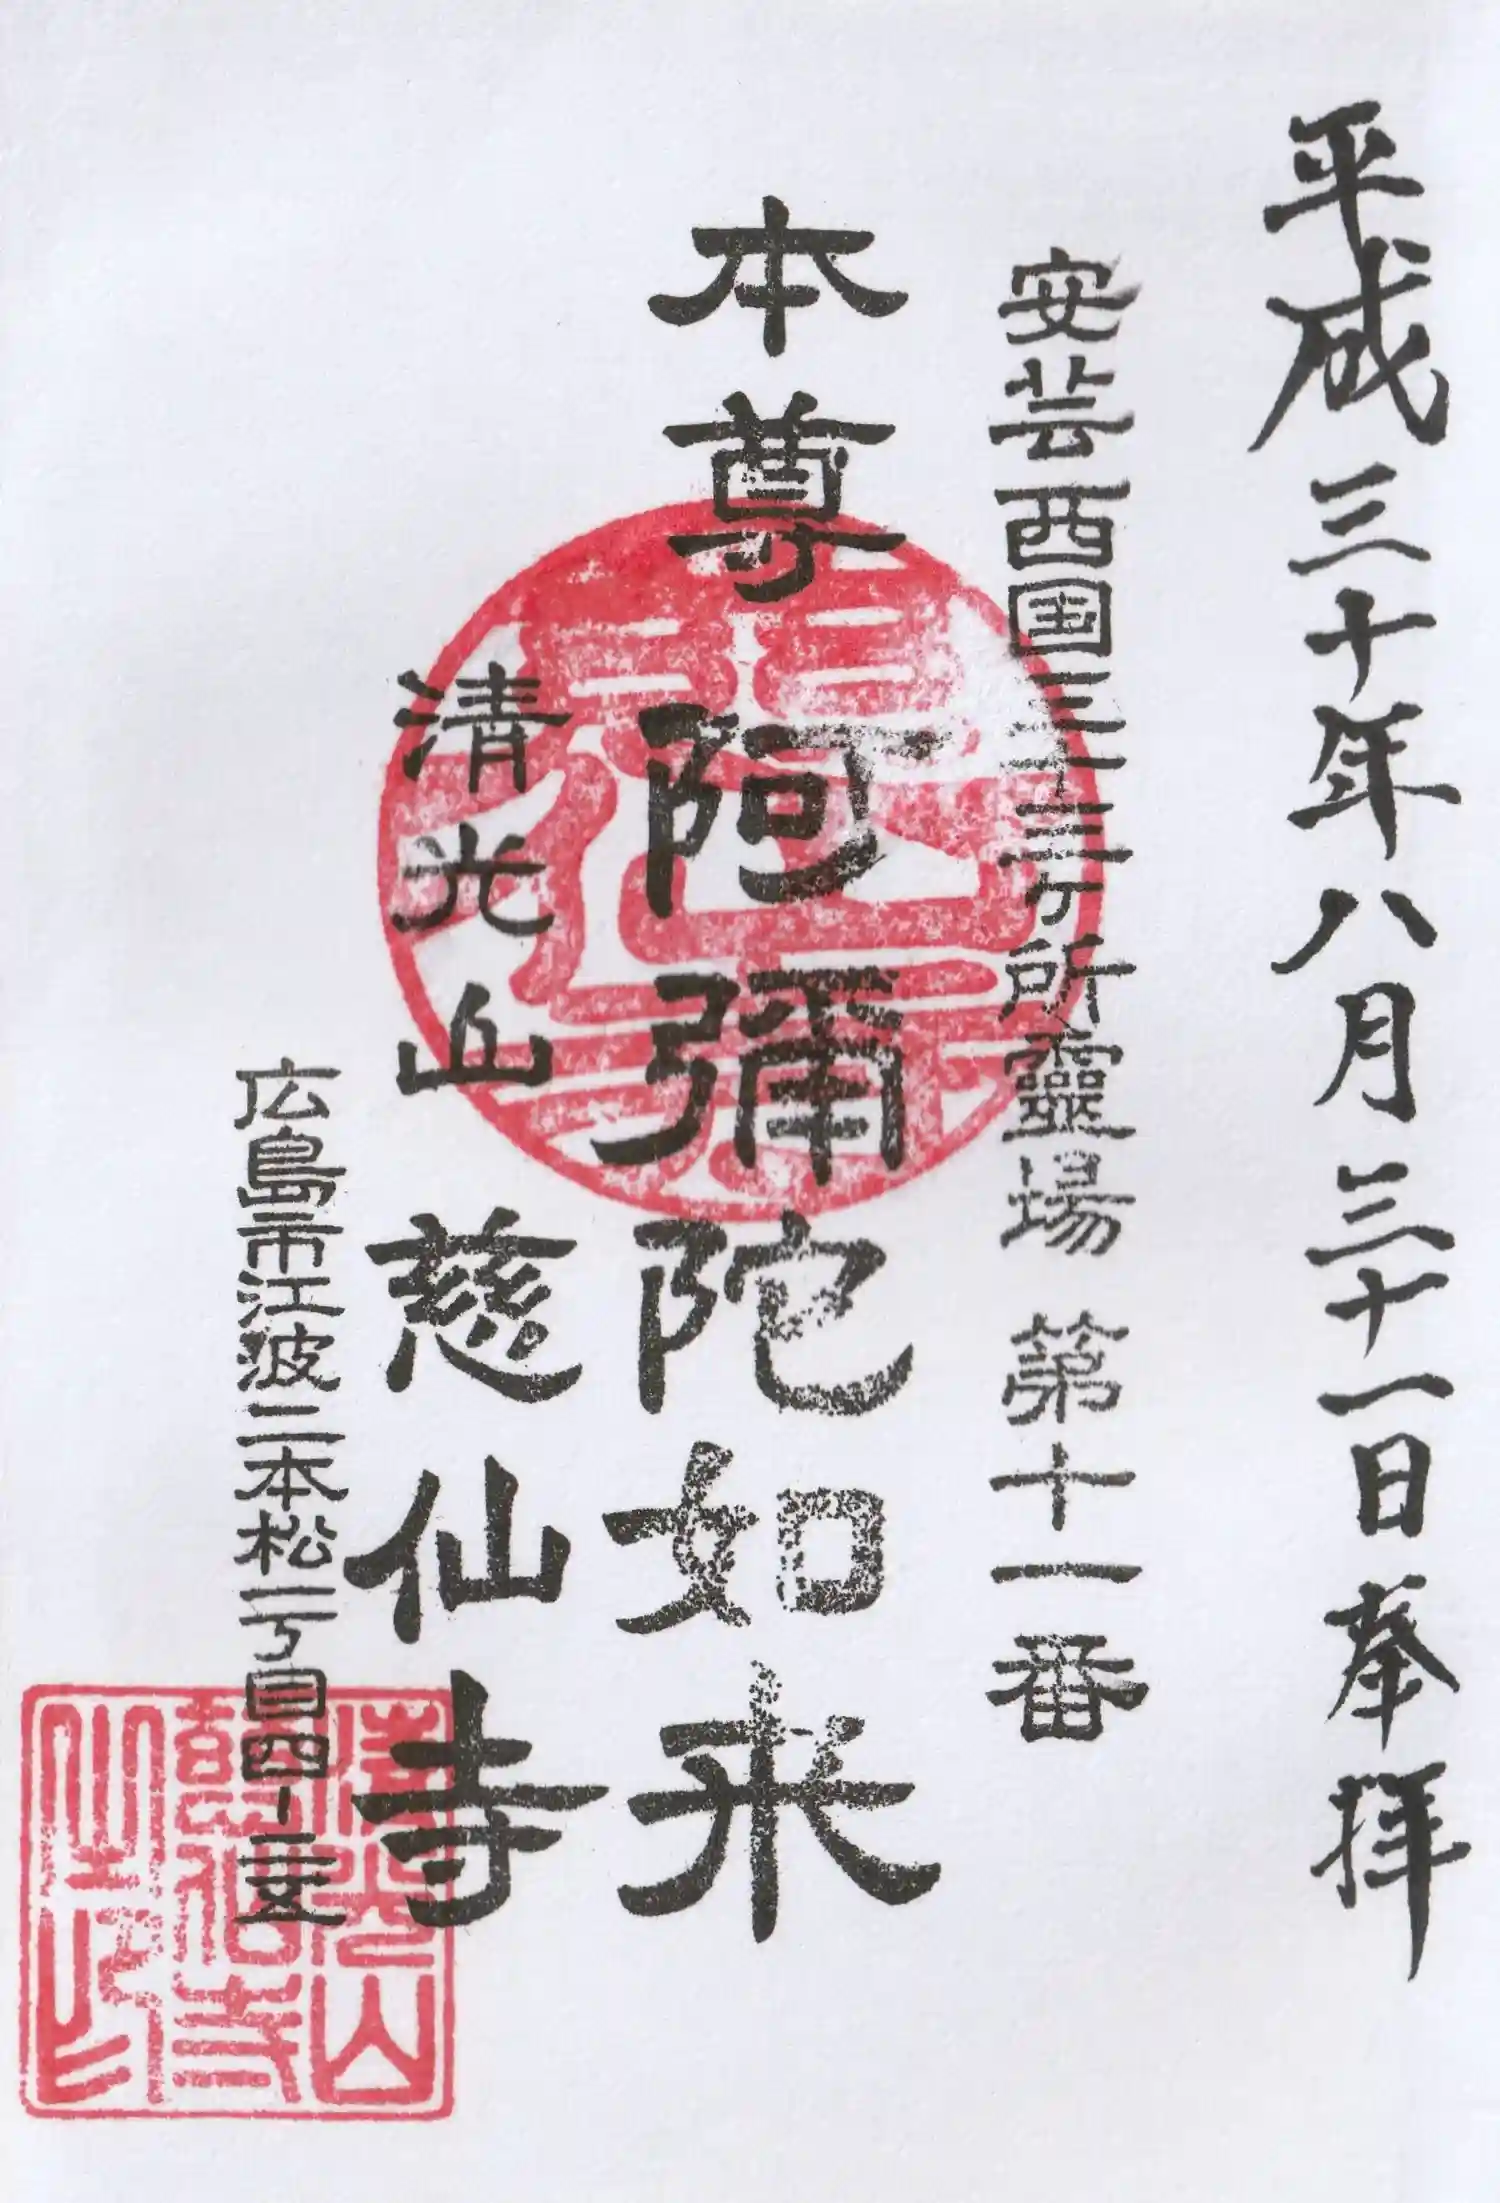 平成三十年八月三十一日奉拝
安芸西国三十三ヶ所靈場 第十一番
本尊阿彌陀如来
清光山 慈仙寺
広島市江波二本松一丁目四-
清光山
慈仙寺
之印